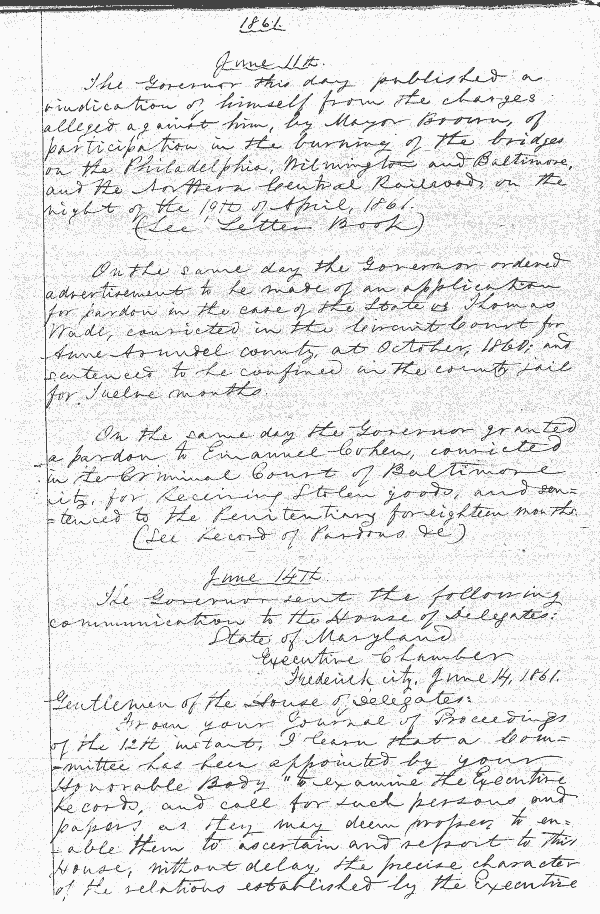 1861.
June 11th.
The Governor this day published a
vindication of himself from the charges
alleged against him, by Mayor Brown, of
participation in the burning of the bridges
on the Philadelphia, Wilmington and Baltimore,
and the Northern Central Railroads on the
night of the 19th of April, 1861.
(See Letter Book)
On the same day the Governor ordered
advertisement to be made of an application
for pardon in the case of the State vs Thomas
Wade, convicted in the Circuit Court for
Anne Arundel county, at October, 1860; and
sentenced to be confined in the county jail
for Twelve months.
On the same day the Governor granted
a pardon to Emanuel Cohen, convicted
in the Criminal Court of Baltimore
city, for Receiving Stolen goods, and sen=
=tenced to the Penitentiary for eighteen months.
(See Record of Pardons &c)
June 14th.
The Governor sent the following
communication to the House of Delegates:
State of Maryland
Executive Chamber
Frederick city, June 14, 1861.
Gentlemen of the House of Delegates:
From your Journal of Proceedings
of the 12th instant, I learn that a Com=
=mittee has been appointed by your
Honorable Body "to examine the Executive
records, and call for such persons and
papers as they may deem proper, to en=
=able them to ascertain and report to this
House, without delay, the precise character
of the relations established by the Executive